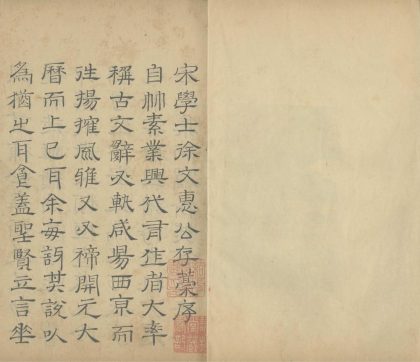 宋學士徐文惠公存藁序
自帥素業興代有作者大率
稱古文辭必軼咸陽西京而
揚搉風雅又必禘開元大
曆而上已耳余每訝其說以
為猶之耳食蓋聖賢立言垂